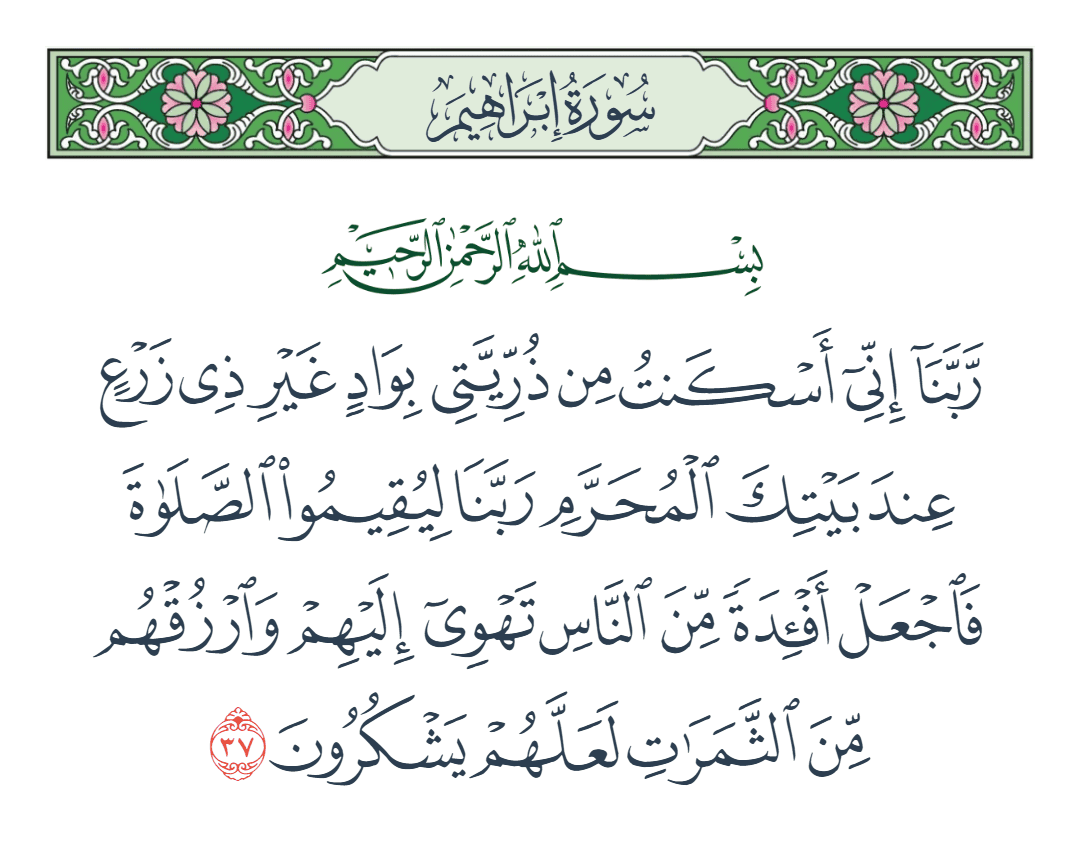 سُورَةُ إِبْرَاهِيمَ
بِسْمِ ٱللَّهِ ٱلرَّحْمَٰنِ ٱلرَّحِيمِ
رَّبَّنَآ إِنِّىٓ أَسْكَنتُ مِن ذُرِّيَّتِى بِوَادٍ غَيْرِ ذِى زَرْعٍ
عِندَ بَيْتِكَ ٱلْمُحَرَّمِ رَبَّنَا لِيُقِيمُوا۟ ٱلصَّلَوٰةَ
فَٱجْعَلْ أَفْـِٔدَةً مِّنَ ٱلنَّاسِ تَهْوِىٓ إِلَيْهِمْ وَٱرْزُقْهُم
مِّنَ ٱلثَّمَرَٰتِ لَعَلَّهُمْ يَشْكُرُونَ ٣٧